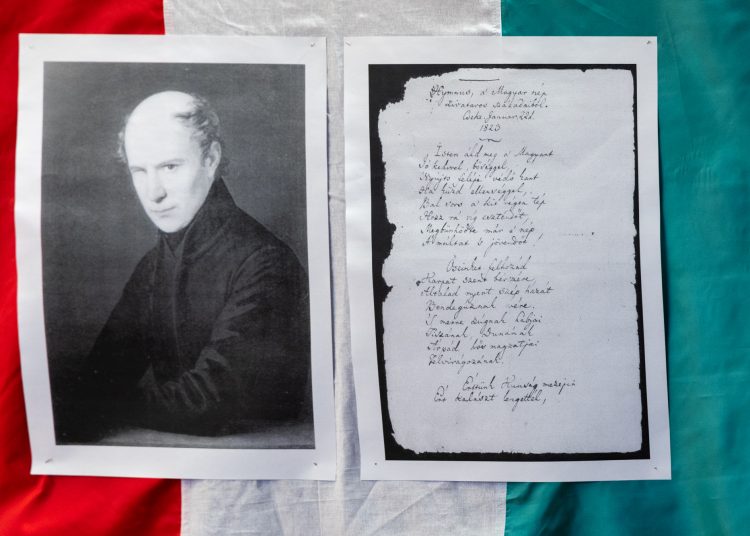 Hymnus, a' Magyar nép
zivataros századaiból.
Cseke Januar 22d
1823
Isten áld meg a Magyart
Jó kedvvel, bőséggel,
Nyujts feléje védő kart
Ha küzd ellenséggel,
Bal sors a' kit régen tép
Hozz rá víg esztendőt,
Megbünhödte már e' nép
A' multat 's jövendőt!
Őseinket felhozád
Kárpát szent bérczére,
Általad nyert szép hazát
Bendegúznak vére,
'S merre zúgnak habjai
Tiszának, Dunának
Árpád hős magzatjai
Felvirágozának.
Értünk Kunság mezején
Ért kalászt lengettél,